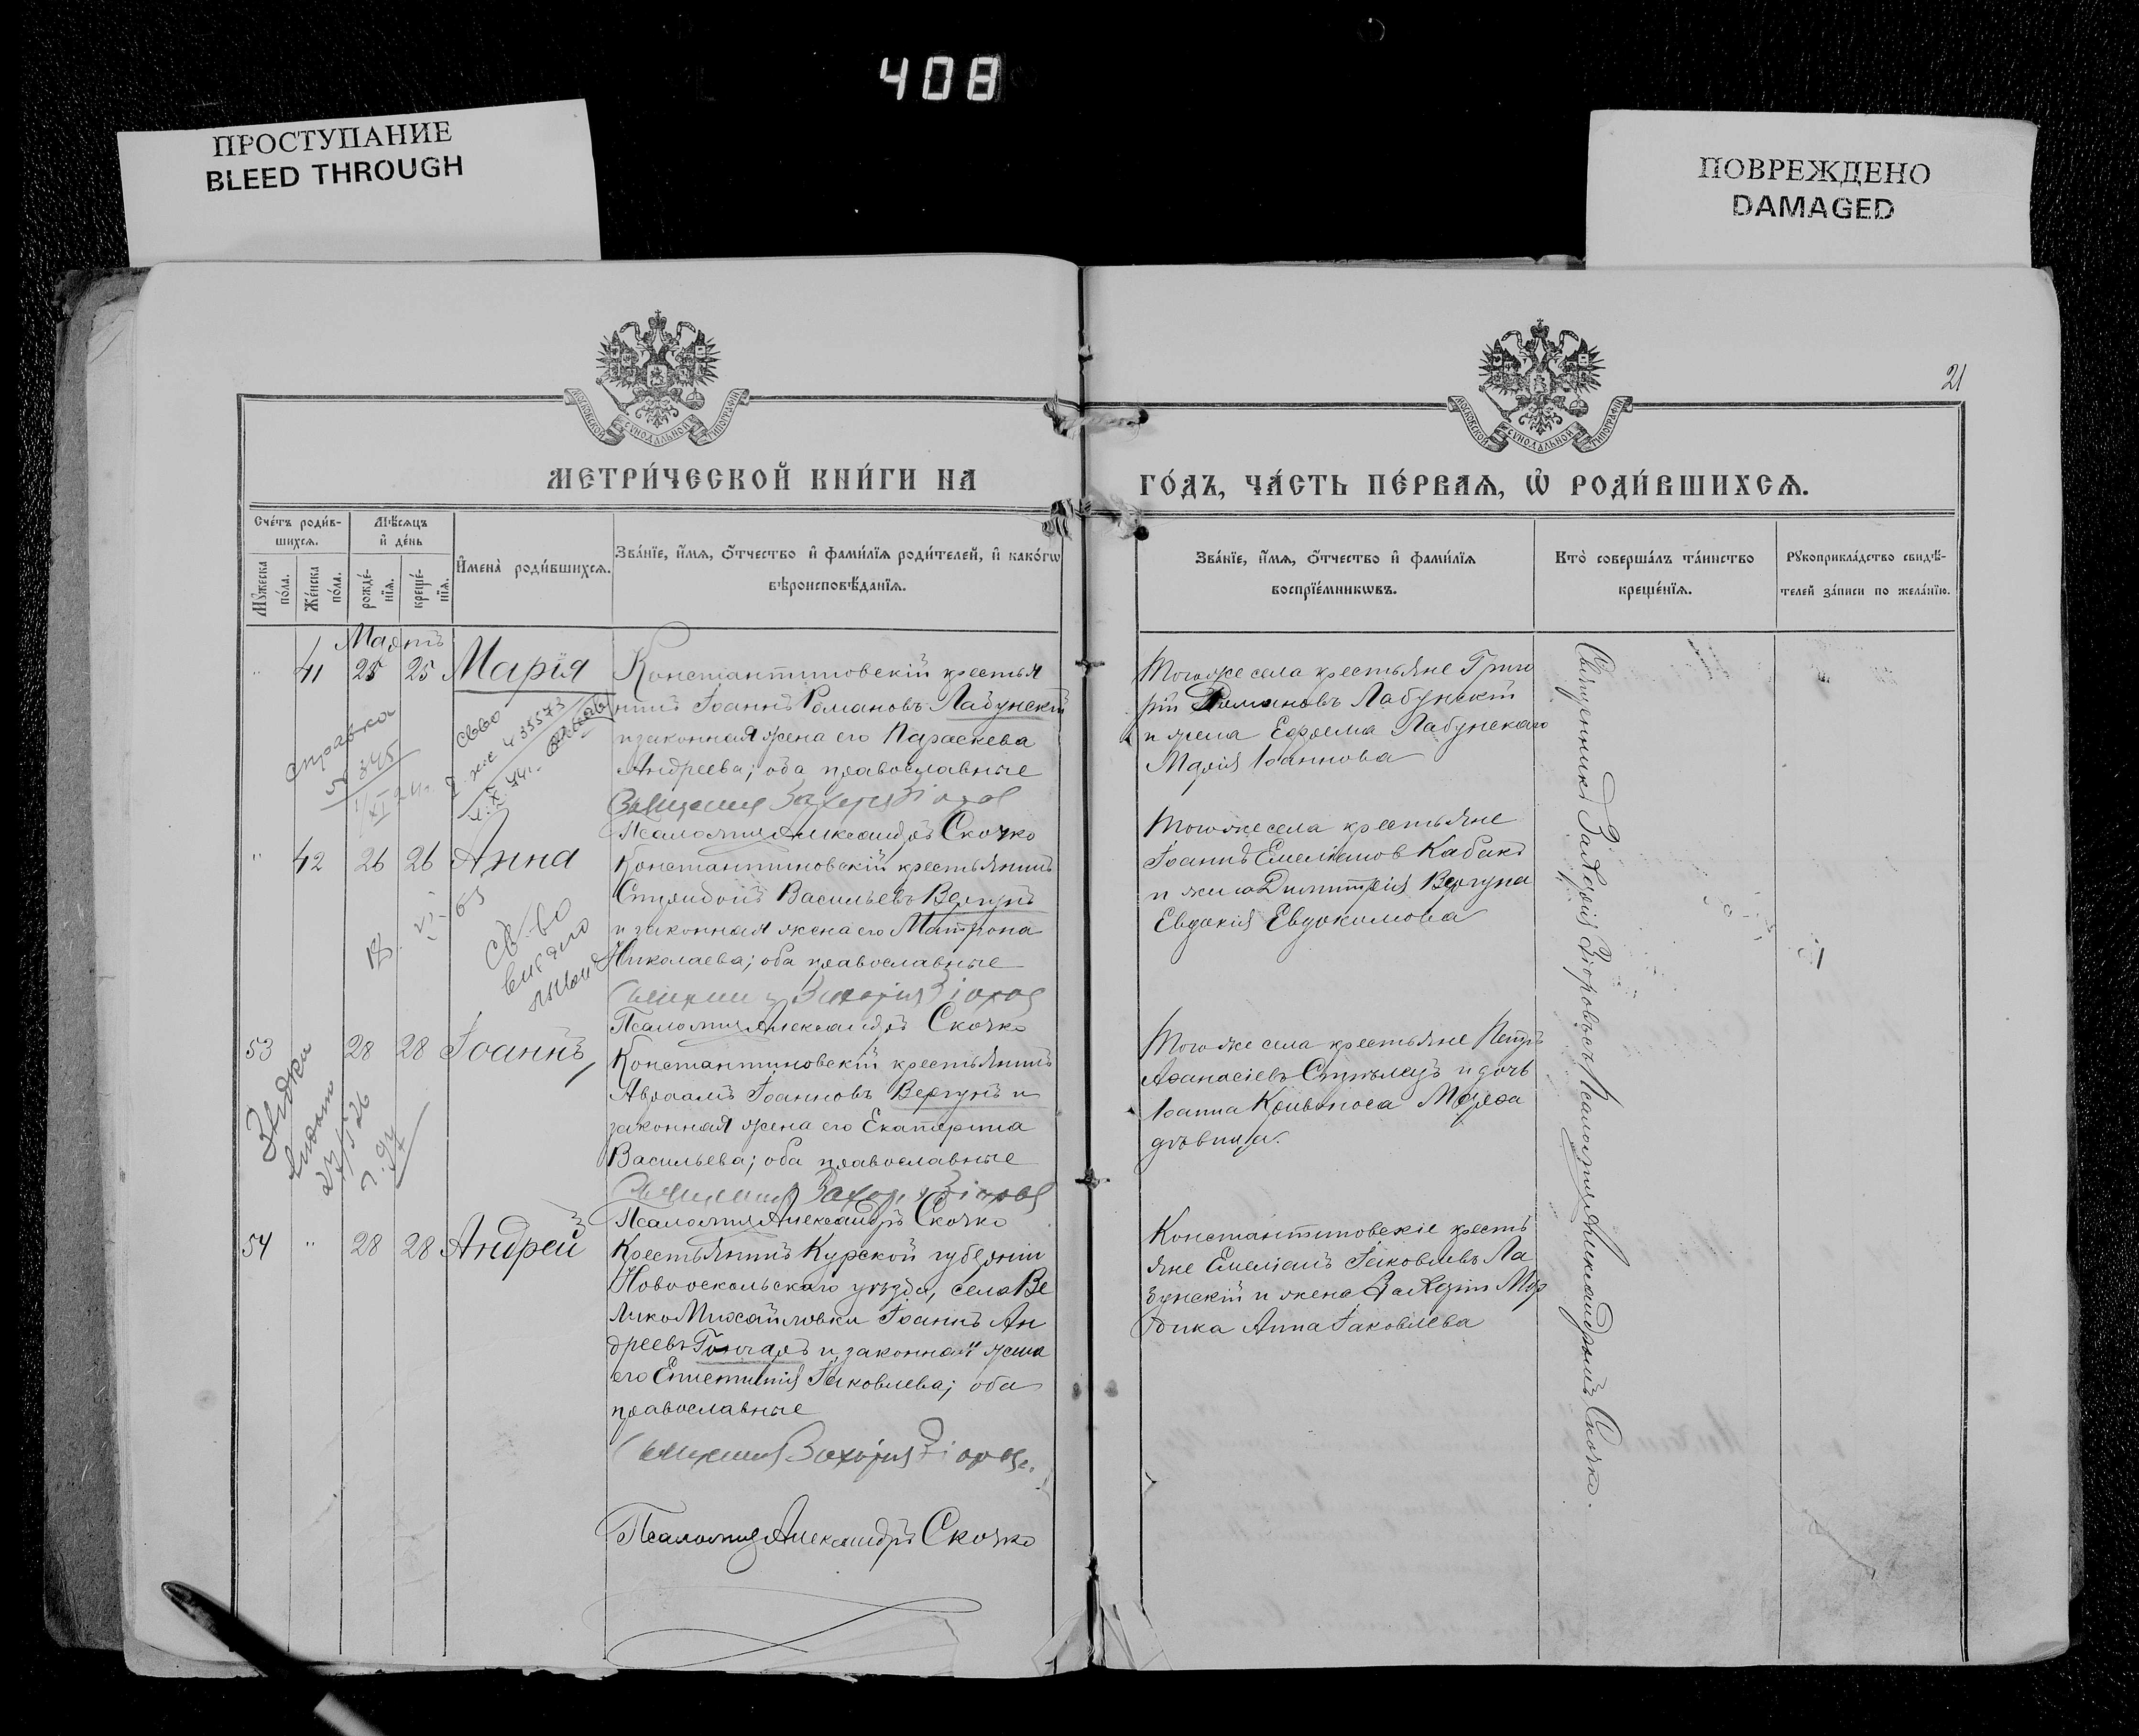 408
ПРОСТУПАНИЕ
BLEED THROUGH
ПОВРЕЖДЕНО
DAMAGED
21
МОСКОВСКОЙ СѴНОДАЛЬНОЙ ТИПОГРАФІИ
МОСКОВСКОЙ СѴНОДАЛЬНОЙ ТИПОГРАФІИ
МЕТРИ́ЧЕСКОЙ КНИ́ГИ НА
ГО́ДЪ, ЧА́СТЬ ПЕ́РВАѦ, Ѡ҆ РОДИ́ВШИХСѦ.
Сче́тъ роди́в-
шихсѧ.
Мѣ́сѧцъ
и҆ де́нь
Мꙋ́жеска
по́ла.
Же́нска
по́ла.
рожде́-
нїѧ.
креще́-
нїѧ.
И҆мена̀ роди́вшихсѧ.
Зва́нїе, и҆́мѧ, ѻ҆́тчество и҆ фами́лїѧ роди́телей, и҆ како́гѡ
вѣроисповѣ́данїѧ.
Зва́нїе, и҆́мѧ, ѻ҆́тчество и҆ фами́лїѧ
воспрїе́мникѡвъ.
Кто̀ соверша́лъ та́инство
креще́нїѧ.
Рꙋкоприкла́дство свидѣ́-
телей за́писи по жела́нїю.
Мартъ
41 25 25 Марія
Константиновскій крестья
нинъ Іоаннъ Романовъ Лабунскій
и законная жена его Параскева
Андреева; оба православные
Священникъ Захарія Зіоров
Псаломщ Александръ Скочко
Тогоже села крестьяне Григо
рій Романовъ Лабунскій
и жена Ефрема Лабунскаго
Марія Іоаннова
справка
№ 345
св-во
" 42 26 26 Анна
Константиновскій крестьянинъ
Спиридонъ Васильевъ Вергунъ
и законная жена его Матрона
Николаева; оба православные
Священник Захарія Зіоров
Псаломщ Александръ Скочко
Тогоже села крестьяне
Іоаннъ Емеліановъ Кабакъ
и жена Димитрія Вергуна
Евдокія Евдокимова
18. VI- 63
св-во
видано
53 28 28 Іоаннъ
Константиновскій крестьянинъ
Авраамъ Іоанновъ Вергунъ и
законная жена его Екатерина
Васильева; оба православные
Священник Захарія Зіоров
Псаломщ Александръ Скочко
Тогоже села крестьяне Петръ
Афанасіевъ Стрѣлецъ и дочь
Іоанна Кривоноса Марѳа
дѣвица.
54 " 28 28 Андрей
Крестьянинъ Курской губерніи
Новооскольскаго уѣзда, села Ве
лико Михайловки Іоаннъ Ан
дреевъ Гончаръ и законная жена
его Епистимія Іаковлева; оба
православные
Священник Захарія Зіоров.
Псаломщ Александръ Скочко
Константиновскіе кресть
яне Емеліанъ Іаковлевъ Ла
бунскій и жена Захарія
Анна Іаковлева
Священникъ Захарія Зіоровъ съ Псаломщ Александромъ Скочко.